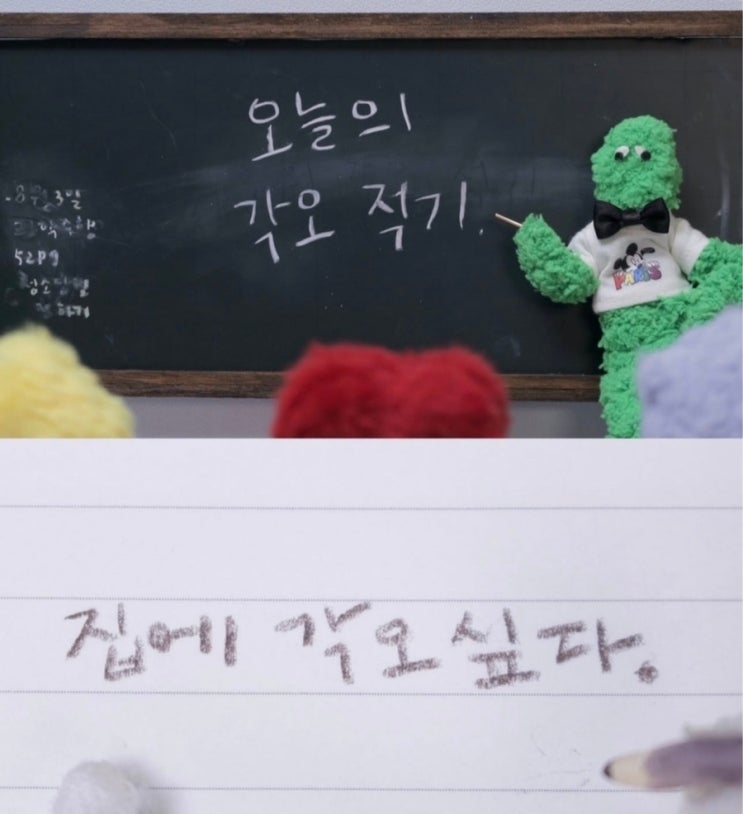 오늘의
각오 적기.
8월 3일
52P9
PARIS
집에 각오싶다.